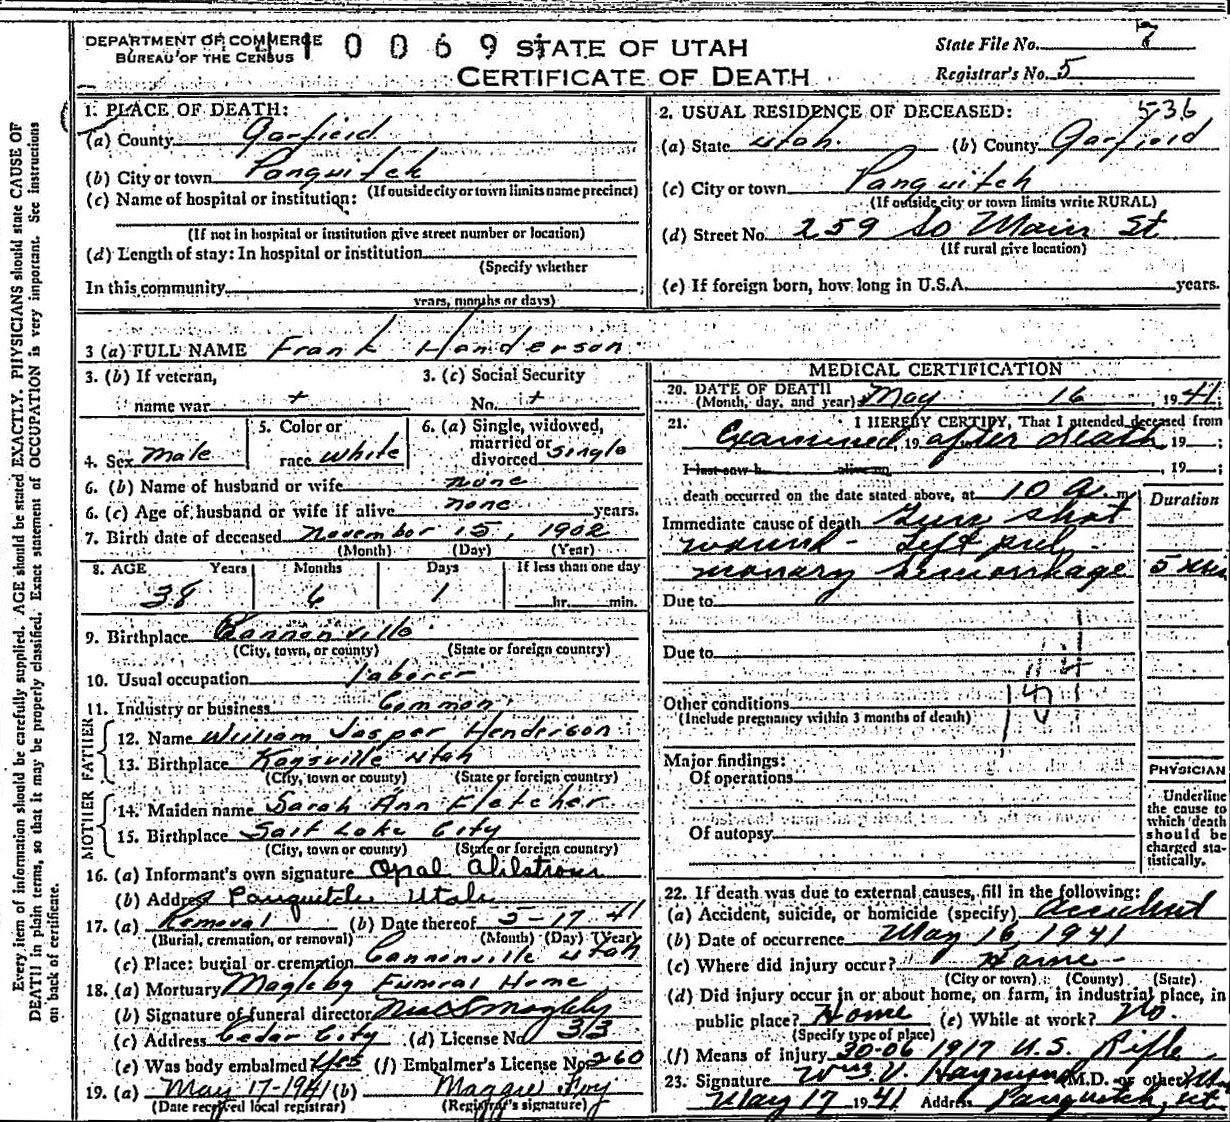 DEPARTMENT OF COMMERCE
BUREAU OF THE CENSUS
10069
STATE OF UTAH
CERTIFICATE OF DEATH
State File No. 7
Registrar's No. 5
Every item of information should be carefully supplied. AGE should be stated EXACTLY. PHYSICIANS should state CAUSE OF
DEATH in plain terms, so that it may be properly classified. Exact statement of OCCUPATION is very important. See instructions
on back of certificate.
1. PLACE OF DEATH:
(a) County Garfield
(b) City or town Panguitch
(If outside city or town limits name precinct)
(c) Name of hospital or institution:
(If not in hospital or institution give street number or location)
(d) Length of stay: In hospital or institution
(Specify whether
In this community ;
years, months or days)
2. USUAL RESIDENCE OF DECEASED: 536
(a) State Utah (b) County Garfield
(c) City or town Panguitch
(If outside city or town limits write RURAL)
(d) Street No. 259 So Main St
(If rural give location)
(e) If foreign born, how long in U.S.A. years.
3 (a) FULL NAME Frank Henderson
3. (b) If veteran,
name war
3. (c) Social Security
No.
4. Sex Male
5. Color or
race White
6. (a) Single, widowed,
married or
divorced Single
6. (b) Name of husband or wife none
6. (c) Age of husband or wife if alive none years.
7. Birth date of deceased November 15, 1902
(Month) (Day) (Year)
8. AGE Years Months Days If less than one day
38 6 1 hr. min.
9. Birthplace Cannonville
(City, town, or county) (State or foreign country)
10. Usual occupation laborer
11. Industry or business Common
FATHER
12. Name William Jasper Henderson
13. Birthplace Kaysville Utah
(City, town or county) (State or foreign country)
MOTHER
14. Maiden name Sarah Ann Fletcher
15. Birthplace Salt Lake City
(City, town or county) (State or foreign country)
16. (a) Informant's own signature Opal Ahlstrom
(b) Address Panguitch Utah
17. (a) Removal (b) Date thereof 5-17 41
(Burial, cremation, or removal) (Month) (Day) (Year)
(c) Place: burial or cremation Cannonville Utah
18. (a) Mortuary Magleby Funeral Home
(b) Signature of funeral director Magleby
(c) Address Cedar City (d) License No. 313
(e) Was body embalmed Yes (f) Embalmer's License No. 260
19. (a) May 17-1941 (b) Maggie Foy
(Date received local registrar) (Registrar's signature)
MEDICAL CERTIFICATION
20. DATE OF DEATH
(Month, day, and year) May 16 1941;
21. I HEREBY CERTIFY, That I attended deceased from
Examined, 19 after death, 19 ;
I last saw h alive on , 19 ;
death occurred on the date stated above, at 10 a. m
Duration
Immediate cause of death Gun shot
wound - Left pul-
monary hemorrhage 5
Due to
Due to
Other conditions
(Include pregnancy within 3 months of death)
Major findings:
Of operations
Of autopsy
PHYSICIAN
Underline
the cause to
which death
should be
charged sta-
tistically.
22. If death was due to external causes, fill in the following:
(a) Accident, suicide, or homicide (specify) Accident
(b) Date of occurrence May 16, 1941
(c) Where did injury occur? Home
(City or town) (County) (State)
(d) Did injury occur in or about home, on farm, in industrial place, in
public place? Home (e) While at work? No.
(Specify type of place)
(f) Means of injury 30-06 1917 U.S. Rifle
23. Signature M.D. or other
May 17 1941 Address Panguitch, Ut.